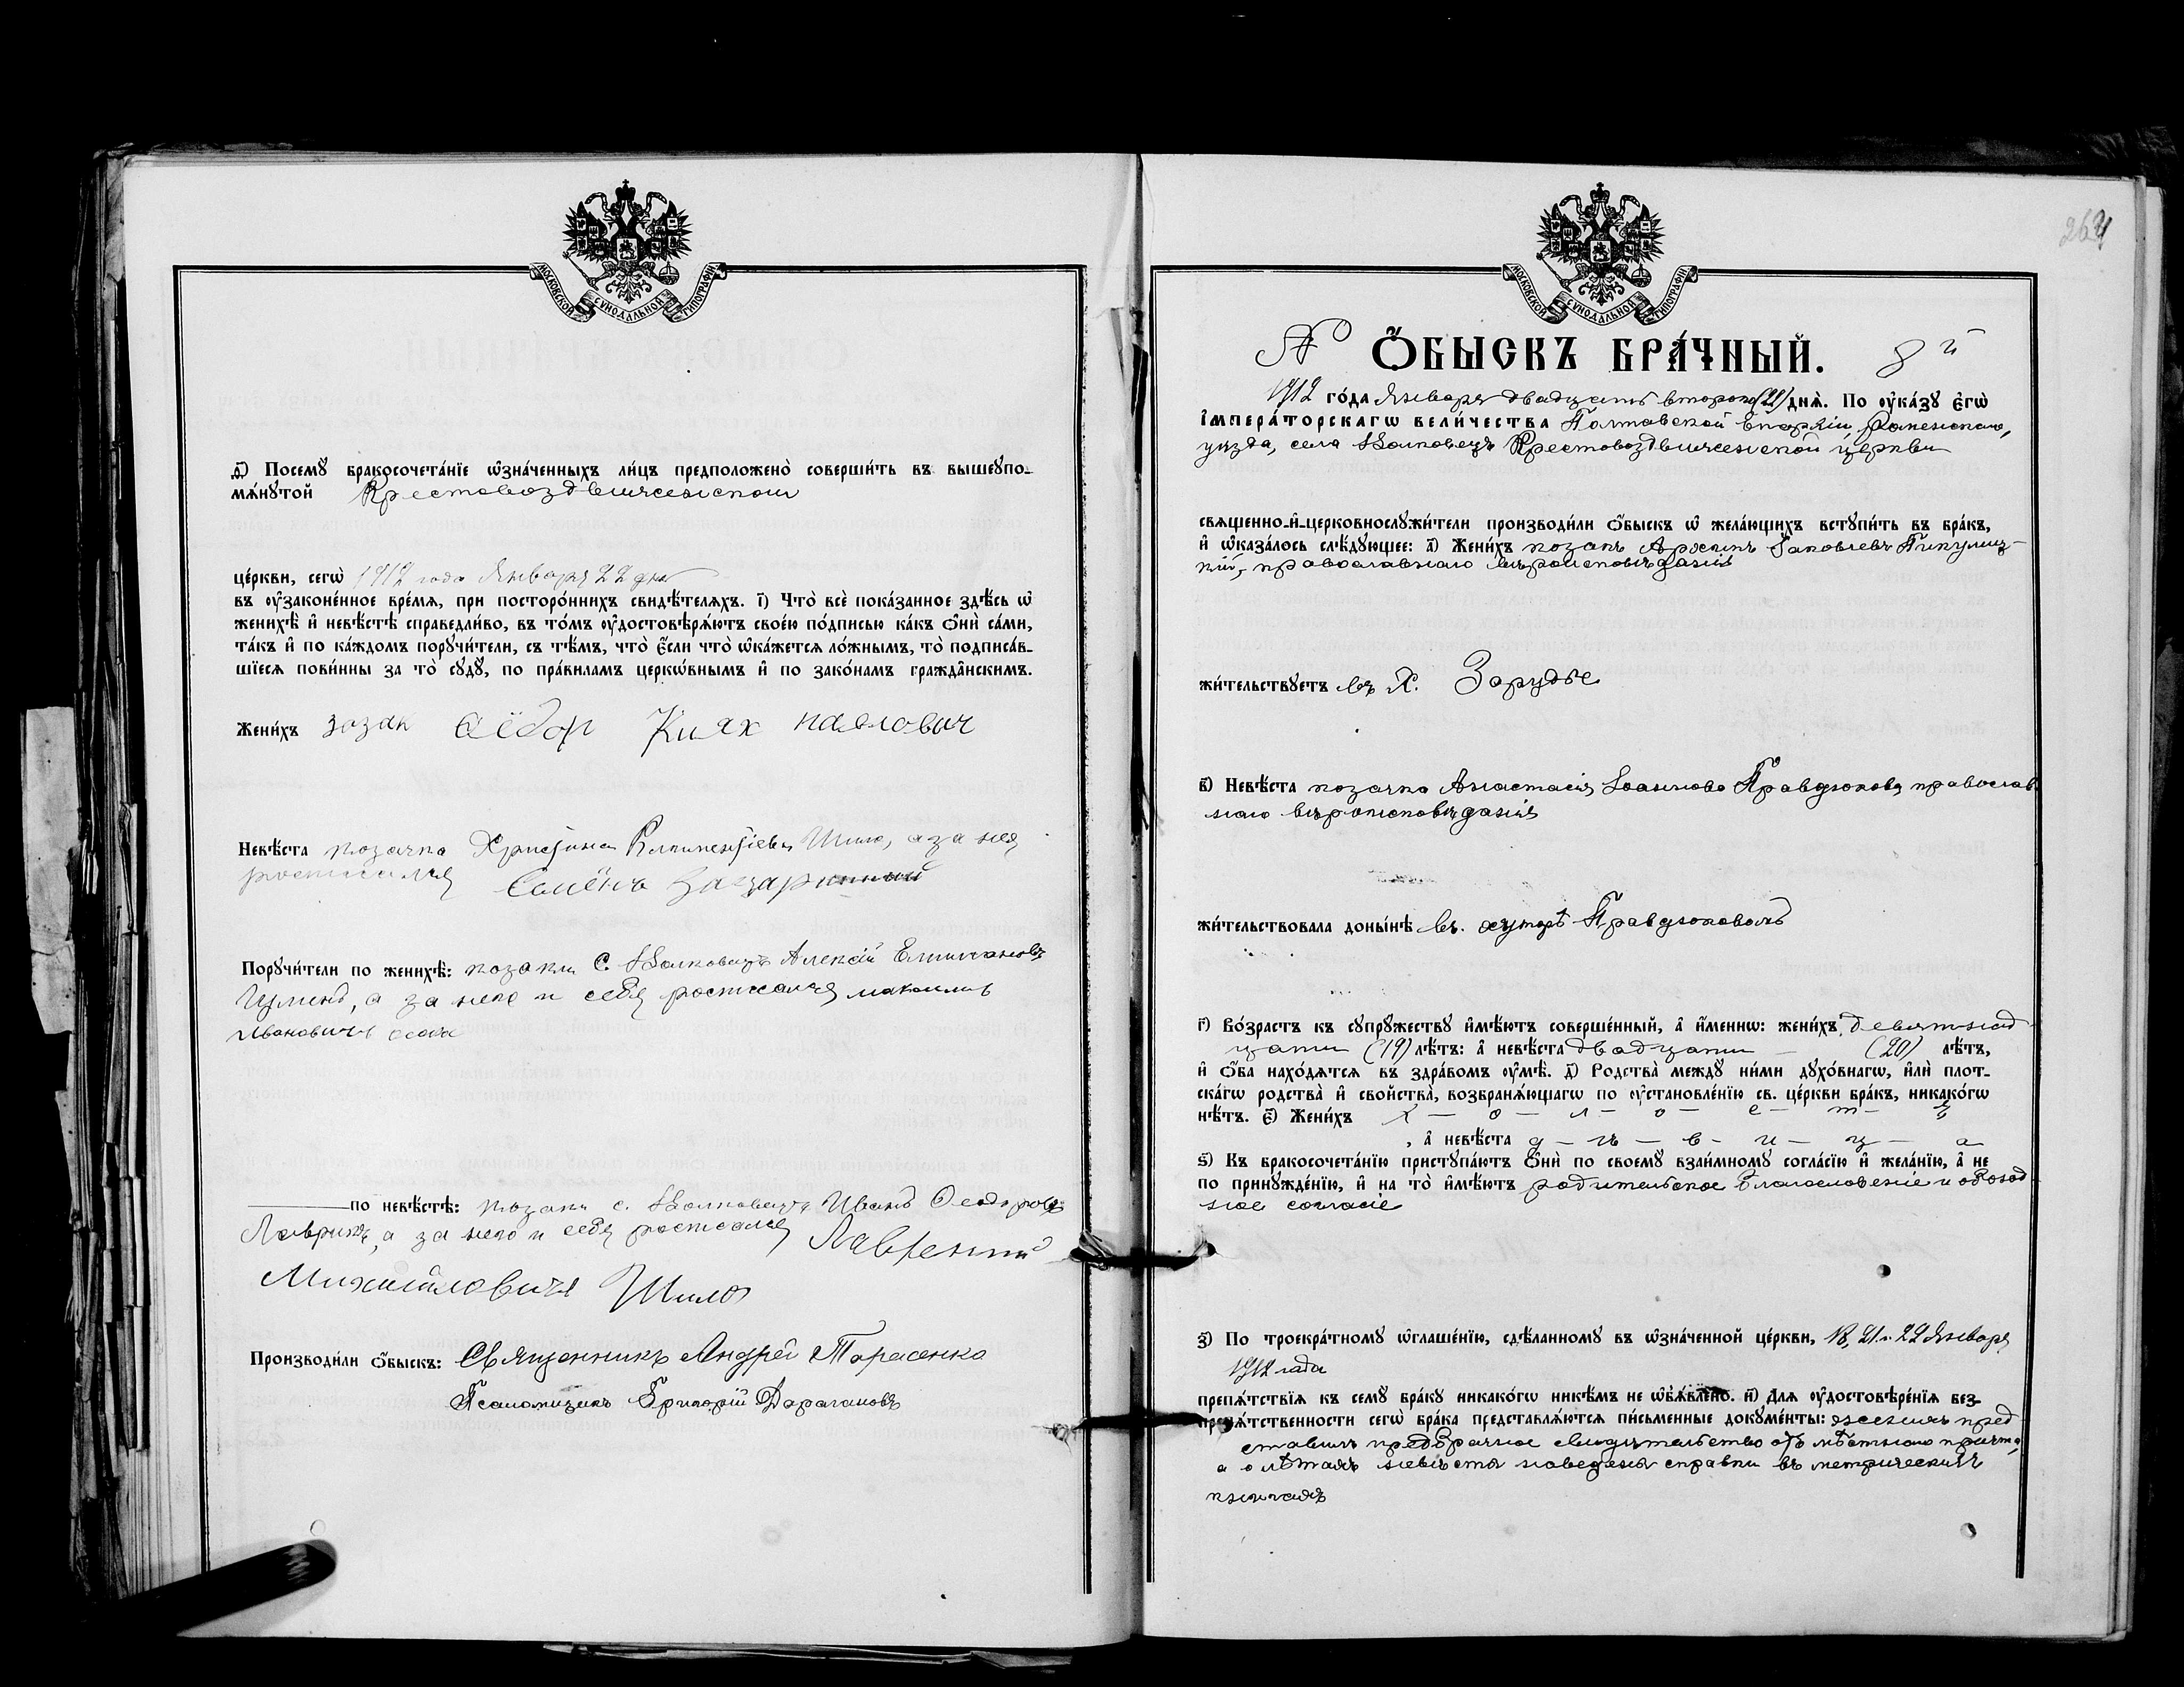 МОСКОВСКОЙ СУНОДАЛЬНОЙ ТИПОГРАФІИ
д҃) Посемꙋ бракосочета́нїе ѡ҆зна́ченныхъ ли́цъ предположено̀ соверши́ть въ вышеꙋпо-
мѧ́нꙋтой Крестовоздвиженской
це́ркви, сегѡ̀ 1912 года Января 22 дня
въ ᲂу҆законе́нное вре́мѧ, при посторо́ннихъ свидѣ́телѧхъ. і҃) Что̀ всѐ пока́занное здѣ́сь ѡ҆
женихѣ̀ и҆ невѣ́стѣ справедли́во, въ то́мъ ᲂу҆достовѣрѧ́ютъ свое́ю по́дписью ка́къ ѻ҆нѝ са́ми,
та́къ и҆ по ка́ждомъ порꙋчи́тели, съ тѣ́мъ, что̀ є҆́сли что̀ ѡ҆ка́жетсѧ ло́жнымъ, то̀ подписа́в-
шїесѧ пови́нны за то̀ сꙋдꙋ̀, по пра́виламъ церкѡ́внымъ и҆ по зако́намъ гражда́нскимъ.
Жени́хъ козак Ѳёдор Кіях павлович
Невѣ́ста козачка Христина Климентіева Шило, а за нея
росписался Семёнъ
Порꙋчи́тели по женихѣ̀: козаки с. Волковецъ Алексій
а за него и себя росписался максимъ
Ивановичъ
по невѣ́стѣ: козаки с. Волковецъ Иванъ Ѳеодоровъ
Лаврикъ, а за него и себя росписался Лаврентій
Михайловичъ Шило
Производи́ли ѻ҆́быскъ: Священникъ Андрей Тарасенко
Псаломщикъ Григорій Дарагановъ
МОСКОВСКОЙ СУНОДАЛЬНОЙ ТИПОГРАФІИ
№ Ѻ҆́БЫСКЪ БРА́ЧНЫЙ. 8й
1912 го́да Января двадцать второго (22) днѧ̀. По ᲂу҆ка́зꙋ є҆гѡ̀
і҆мпера́торскагѡ вели́чества Полтавской Епархіи Роменскаго,
уѣзда, села Волковецъ Крестовоздвиженской церкви
свѧщенно-и҆-церковнослꙋжи́тели производи́ли ѻ҆́быскъ ѡ҆ жела́ющихъ встꙋпи́ть въ бра́къ,
и҆ ѡ҆каза́лось слѣ́дꙋющее: а҃) Жени́хъ козакъ Архипъ Іаковлевъ Пикулиц-
кій, православнаго вѣроисповѣданія
жи́тельствꙋетъ въ х. Зарудье
в҃) Невѣ́ста козачка Анастасія Іоаннова Правдюкова, православ
наго вѣроисповѣданія
жи́тельствовала доны́нѣ въ. хуторѣ Правдюковомъ
г҃) Во́зрастъ къ сꙋпрꙋ́жествꙋ и҆мѣ́ютъ соверше́нный, а҆ и҆́меннѡ: жени́хъ девятнад
цати (19) лѣ́тъ: а҆ невѣ́ста двадцати (20) лѣ́тъ,
и҆ ѻ҆́ба нахо́дѧтсѧ въ здра́вомъ ᲂу҆мѣ̀. д҃) Родства̀ междꙋ̀ ни́ми дꙋхо́внагѡ, и҆лѝ плот-
ска́гѡ родства̀ и҆ свойства̀, возбранѧ́ющагѡ по ᲂу҆становле́нїю св. це́ркви бра́къ, никако́гѡ
нѣ́тъ. є҃) Жени́хъ х — о — л — о — с — т — ъ
, а҆ невѣ́ста д — ѣ — в — и — ц — а
ѕ҃) Къ бракосочета́нїю пристꙋпа́ютъ ѻ҆нѝ по своемꙋ̀ взаи́мномꙋ согла́сїю и҆ жела́нїю, а҆ не
по принꙋжде́нїю, и҆ на то̀ и҆мѣ́ютъ родительское благословеніе и обоюд
ное согласіе
з҃) По троекра́тномꙋ ѡ҆глаше́нїю, сдѣ́ланномꙋ въ ѡ҆зна́ченной це́ркви, 18, 21 и 22 Января
1912 года
препѧ́тствїѧ къ семꙋ̀ бра́кꙋ никако́гѡ никѣ́мъ не ѡ҆б̾ѧ́влено. и҃) Длѧ ᲂу҆достовѣре́нїѧ без-
препѧ́тственности сегѡ̀ бра́ка представлѧ́ютсѧ пи́сьменные докꙋме́нты: женихъ пред
ставилъ предбрачное свидѣтельство отъ мѣстнаго причта,
а о лѣтахъ невѣсты наведена справка въ метрическихъ
книгахъ